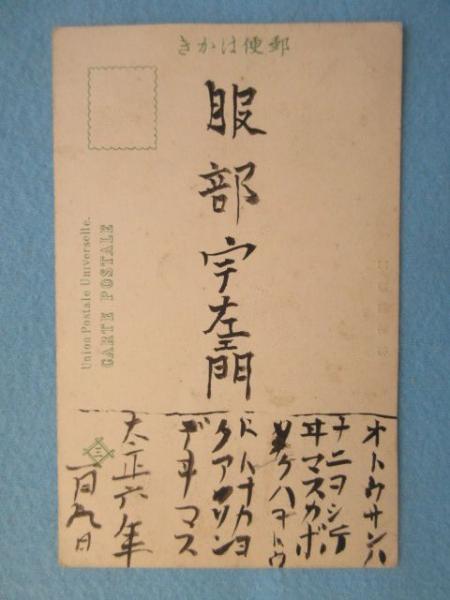 郵便はかき
服部宇左エ門
オトウサンハ
ナニヲシテ
ヰマスカボ
クハヲトウ
トトナカヨ
クアソン
デヰマス
大正六年
一月九日
Union Postale Universelle.
CARTE POSTALE
三